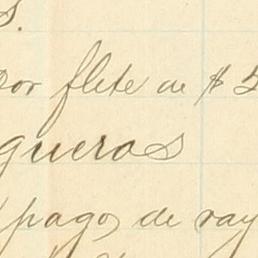 s.
por flete de $ 5
gueras
pago, de ray